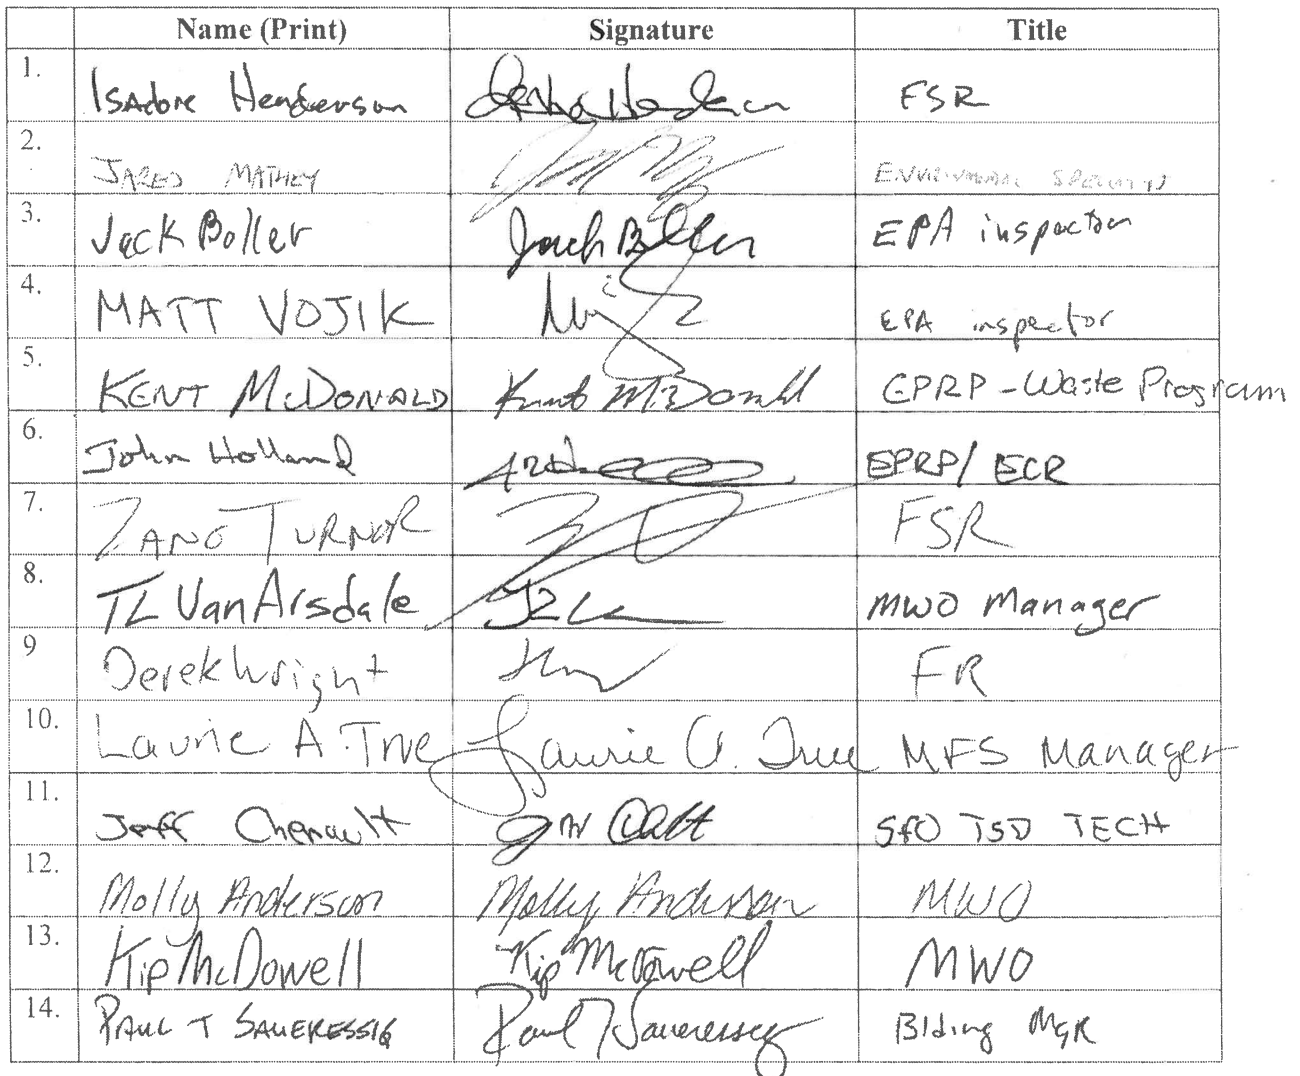 Name (Print) Signature Title
1. Isadore Henderson Isadore Henderson FSR
2. JARED MATHEY
3. Jack Boller Jack Boller EPA inspector
4. MATT VOJIK EPA inspector
5. KENT McDONALD Kent McDonald EPRP - Waste Program
6. John Holland EPRP/ ECR
7. ZANE TURNER FSR
8. TL VanArsdale MWO Manager
9 Derek Wright FR
10. Laurie A. True Laurie A. True MFS Manager
11. Jeff Chenault SFO TSD TECH
12. Molly Anderson Molly Anderson MWO
13. Kip McDowell Kip McDowell MWO
14. PAUL T SAUERESSIG Paul T Saueressig Blding MGR